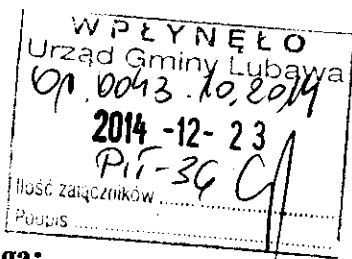 WPŁYNĘŁO
Urząd Gminy Lubawa
Op.0043.10.2014
2014 -12- 23
PIT-36
Ilość załączników
Podpis
ga: